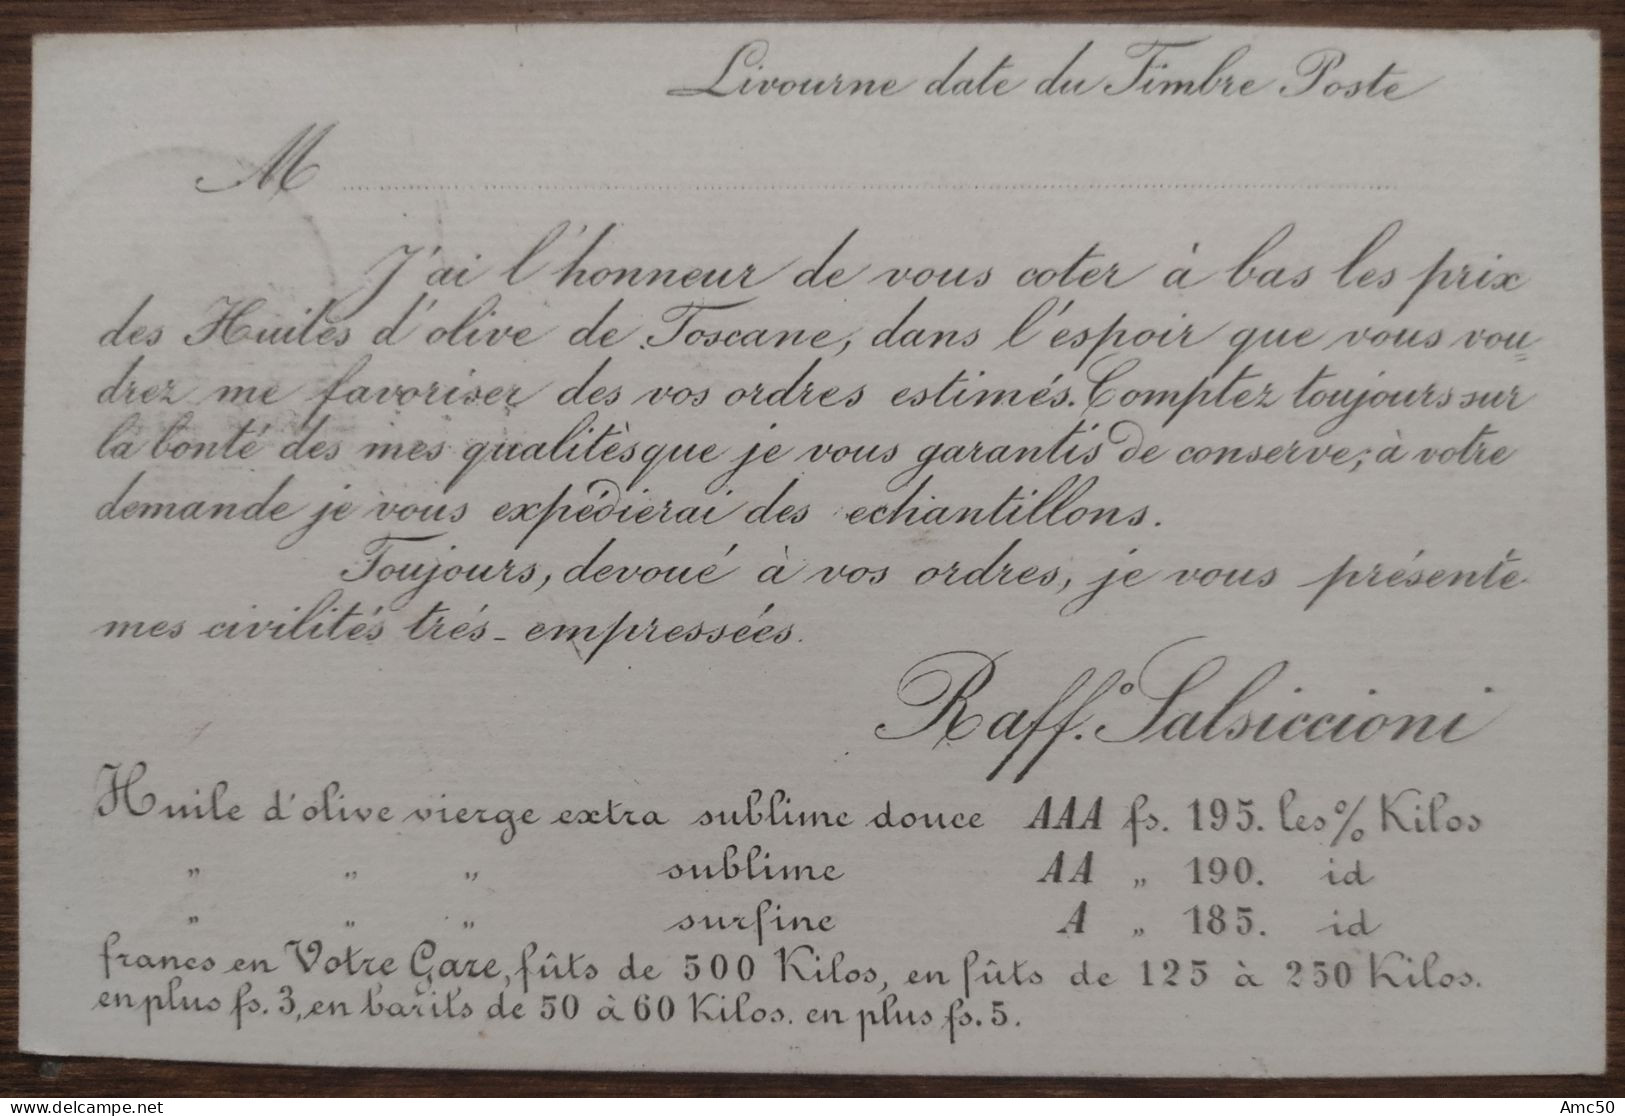 Livourne date du Timbre Poste
M
J'ai l'honneur de vous coter à bas les prix
des Huiles d'olive de Toscane, dans l'espoir que vous vou=
drez me favoriser des vos ordres estimés. Comptez toujours sur
la bonté des mes qualitès que je vous garantis de conserve; à votre
demande je vous expédierai des echantillons.
Toujours, devoué à vos ordres, je vous présente
mes civilités trés-empressées.
Raff.º Salsiccioni
Huile d'olive vierge extra sublime douce AAA fs. 195. les % Kilos
" " " sublime AA " 190. id
" " " surfine A " 185. id
francs en Votre Gare, fûts de 500 Kilos, en fûts de 125 à 250 Kilos.
en plus fs. 3, en barils de 50 à 60 Kilos. en plus fs. 5.
delcampe.net
Amc50